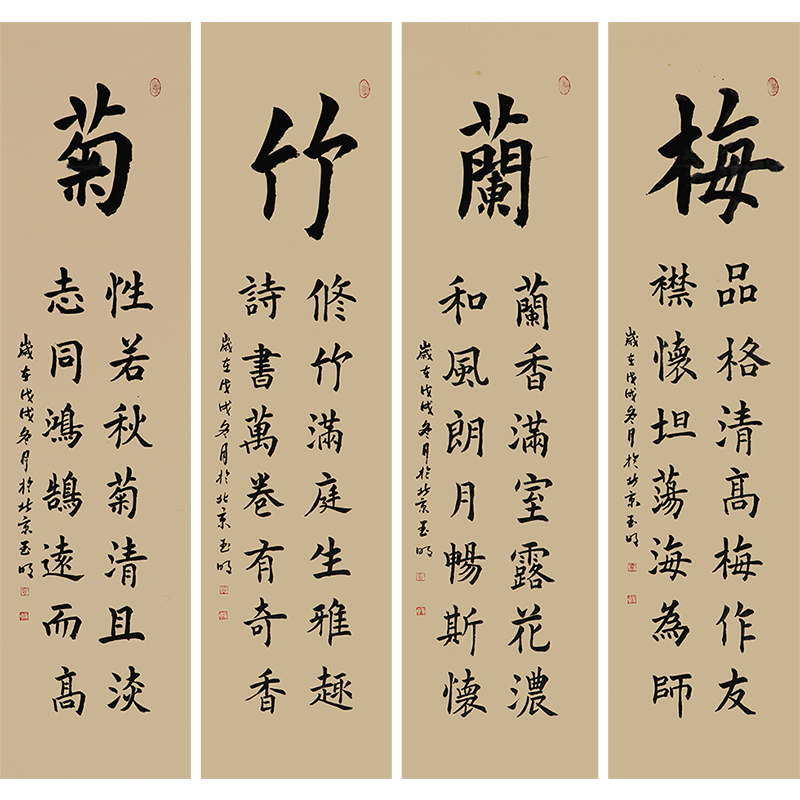 梅
品格清高梅作友
襟懷坦蕩海為師
歲在戊戌冬月於北京玉明
蘭
蘭香滿室露花濃
和風朗月暢斯懷
歲在戊戌冬月於北京玉明
竹
修竹滿庭生雅趣
詩書萬卷有奇香
歲在戊戌冬月於北京玉明
菊
性若秋菊清且淡
志同鴻鵠遠而高
歲在戊戌冬月於北京玉明